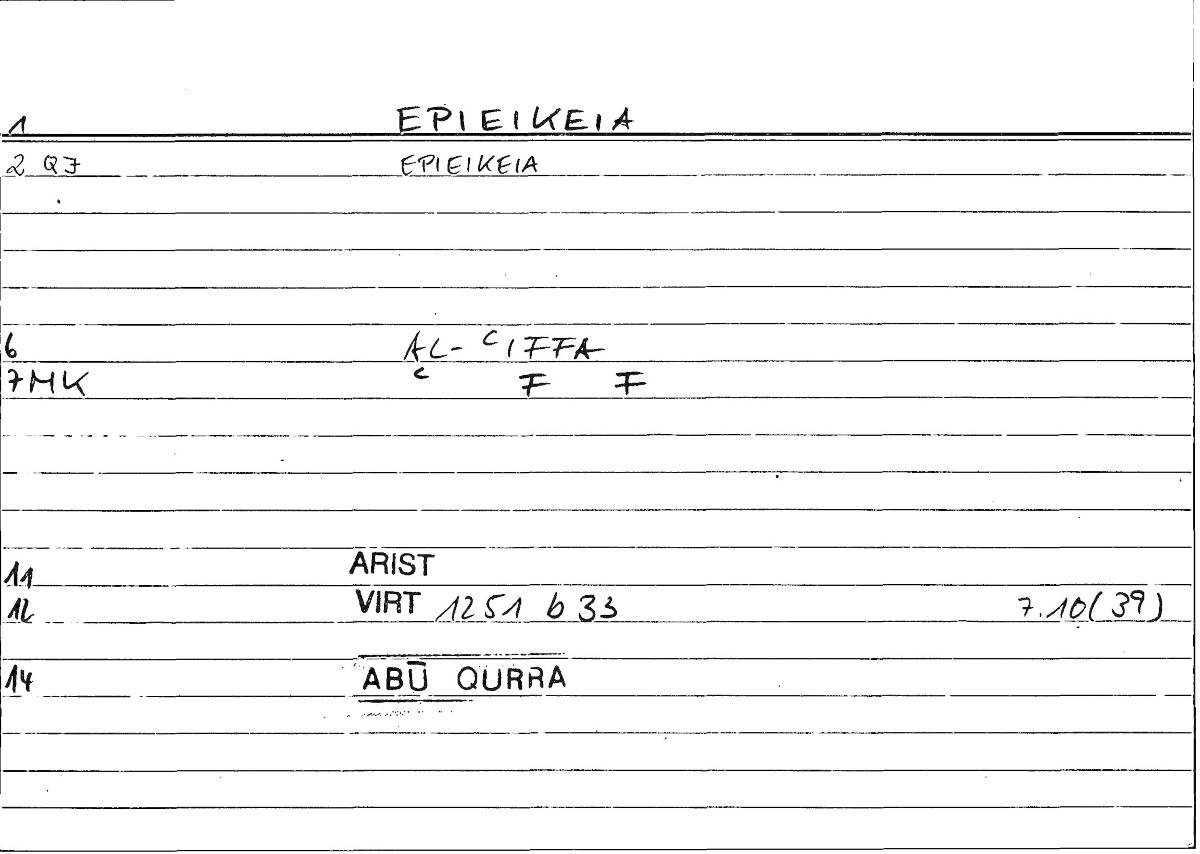 1 EPIEIKEIA
2 QF EPIEIKEIA
6 AL- ᶜIFFA
7 MK ᶜ F F
11 ARIST
12 VIRT 1251 b 33 7.10(39)
14 ABŪ QURRA